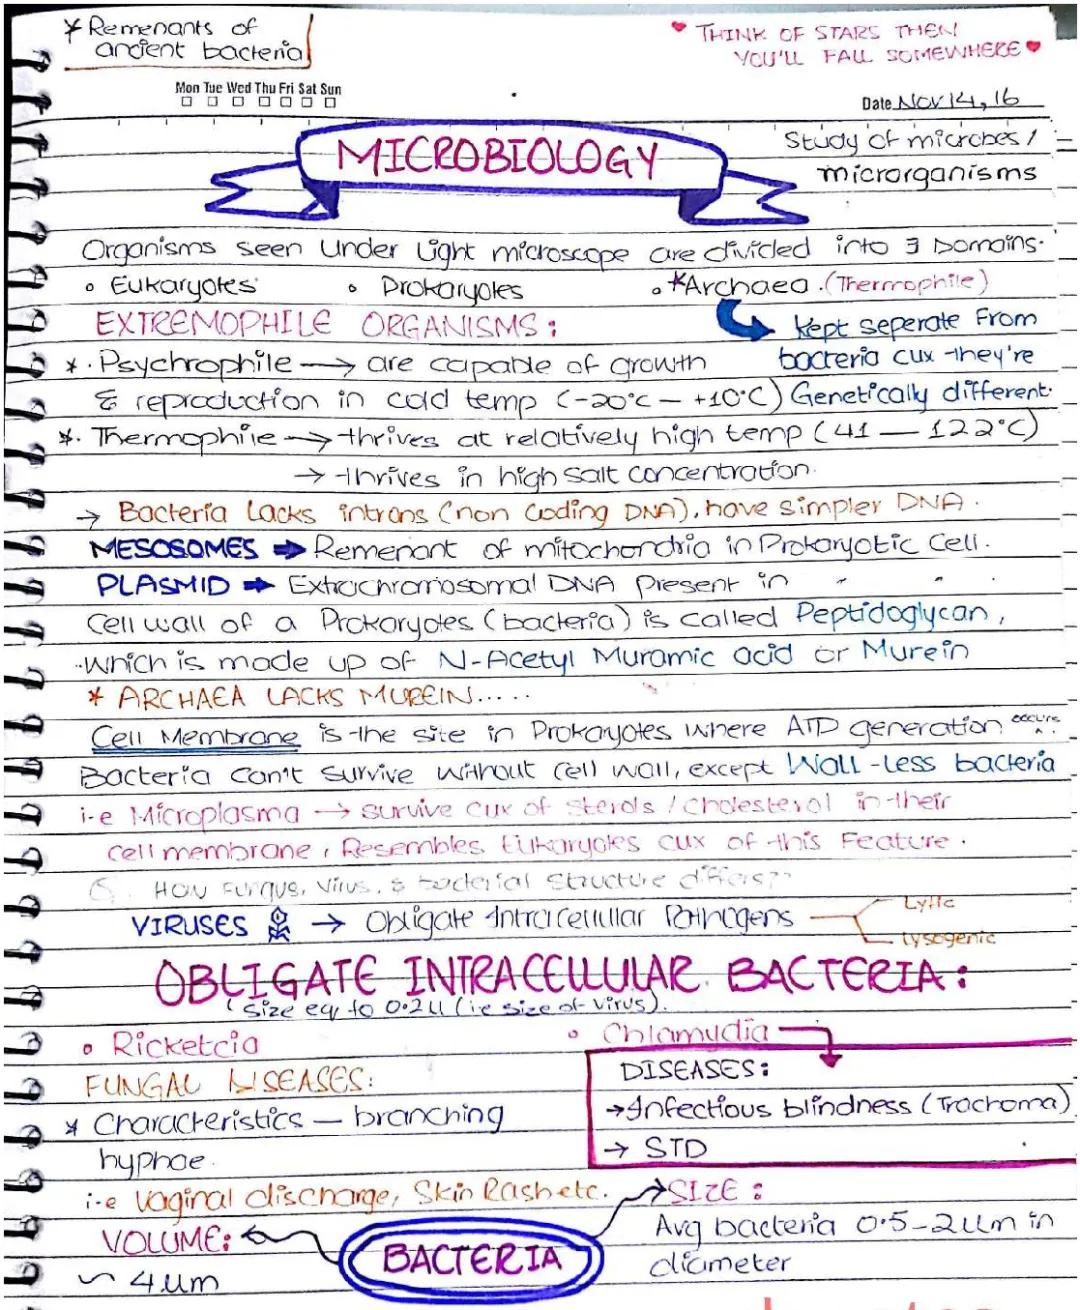 * Remenants of
ancient bacteria
♥ THINK OF STARS THEN
YOU'LL FALL SOMEWHERE ♥
Mon Tue Wed Thu Fri Sat Sun
Date Nov 14, 16
MICROBIOLOGY
Study of microbes /
microrganisms
Organisms seen Under Light microscope are divided into 3 Domains.
• Eukaryotes • Prokaryotes • *Archaea. (Thermophile)
EXTREMOPHILE ORGANISMS:
Kept seperate From
bacteria cux they're
Genetically different.
*. Psychrophile → are capable of growth
& reproduction in cold temp (-20°C — +10°C)
*. Thermophile → thrives at relatively high temp (41 — 122°C)
→ thrives in high salt concentration.
→ Bacteria lacks introns (non coding DNA), have simpler DNA.
MESOSOMES ⇒ Remenant of mitochondria in Prokaryotic Cell.
PLASMID ⇒ Extrachromosomal DNA Present in " "
Cell wall of a Prokaryotes (bacteria) is called Peptidoglycan,
Which is made up of N-Acetyl Muramic acid or Murein
* ARCHAEA LACKS MUREIN.....
Cell Membrane is the site in Prokaryotes where ATP generation occurs.
Bacteria Can't Survive Without Cell wall, except Wall-less bacteria
i.e Microplasma → survive cux of sterols / cholesterol in their
cell membrane, Resembles Eukaryotes cux of this Feature.
Q. How Fungus, Virus, & bacterial Structure differs??
VIRUSES → Obligate Intracellular Pathogens
Lytic
Lysogenic
OBLIGATE INTRACELLULAR BACTERIA:
(Size eq to 0.2u (i.e size of virus).
• Ricketcia • Chlamydia
DISEASES:
→ Infectious blindness (Trachoma)
→ STD
FUNGAL DISEASES:
* Characteristics — branching
hyphae.
i.e Vaginal discharge, Skin Rash etc.
→ SIZE:
Avg bacteria 0.5-2um in
diameter
BACTERIA
VOLUME:
~ 4um